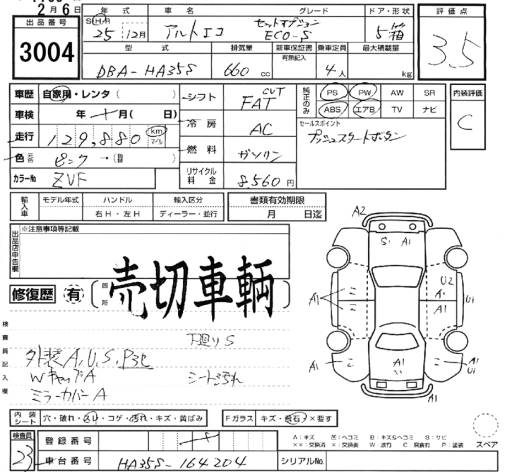 2月6日
出品番号
3004
年式 車名 グレード ドア・形状
S H 25 12月 アルトエコ ECO-S 5 箱
型式 排気量 新車保証書 有無記入 乗車定員 最大積載量
DBA-HA35S 660 cc 4人 kg
評価点
3.5
車歴 自家用・レンタ( )
車検 年 月( 日)
走行 129,880 km マイル
色 元色 ピンク →(替 )
カラーNo ZVF
シフト CVT FAT
冷房 AC
燃料 ガソリン
リサイクル料金 8,560円
純正のみ PS PW AW SR
ABS エアB TV ナビ
セールスポイント
プッシュスタートボタン
内装評価
C
輸入車 モデル年式 ハンドル 輸入区分
年 右H・左H ディーラー・並行
書類有効期限
月 日迄
出品店申告欄 ※注意事項等記載
修復歴 有 箇所
売切車輌
検査員記入欄
下廻りS
外装A,U,S,P3c
WキャップA シート汚れ
ミラーカバーA
A2
S1 A1
A1 U2 U1
A1 A1 A1 U1
A1
内装シート 穴・破れ・スレ・コゲ・汚れ・キズ・黄ばみ Fガラス キズ・飛石・×要す
スペア
検査員 23
登録番号
車台番号 HA35S-164204 シリアルNo.
A:キズ U:ヘコミ B:キズ&ヘコミ S:サビ
××:交換済 ×:要交換 W:波打 C:腐食 P:塗装